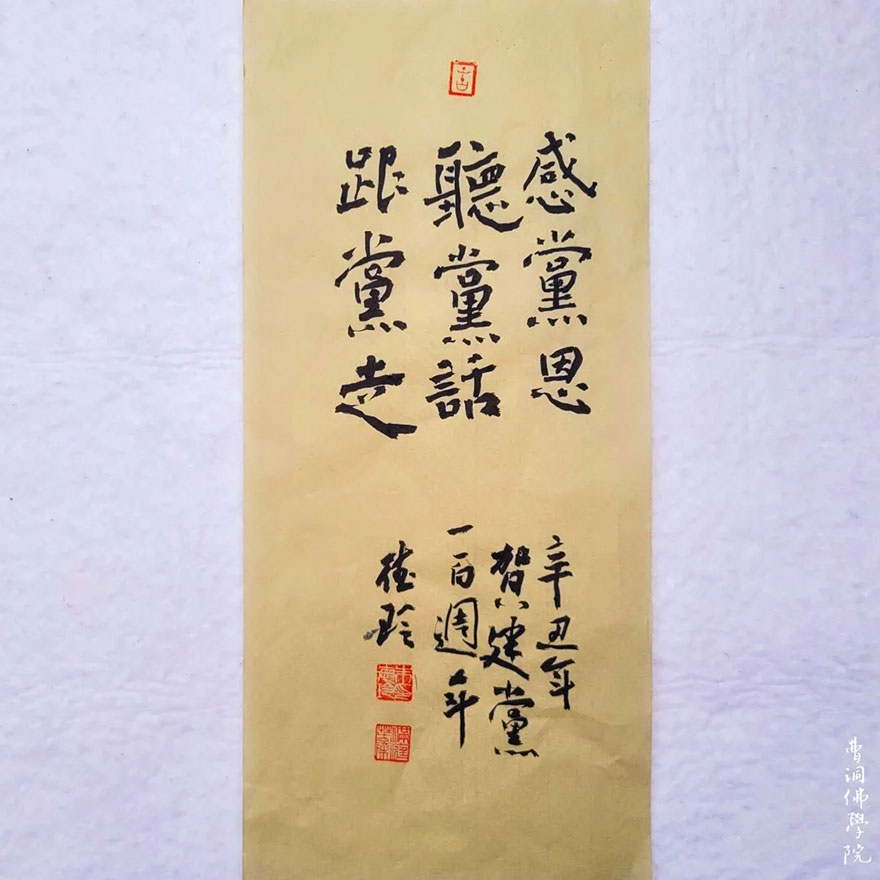 感黨恩
聽黨話
跟黨走
辛丑年
賀建黨
一百週年
曹洞佛學院